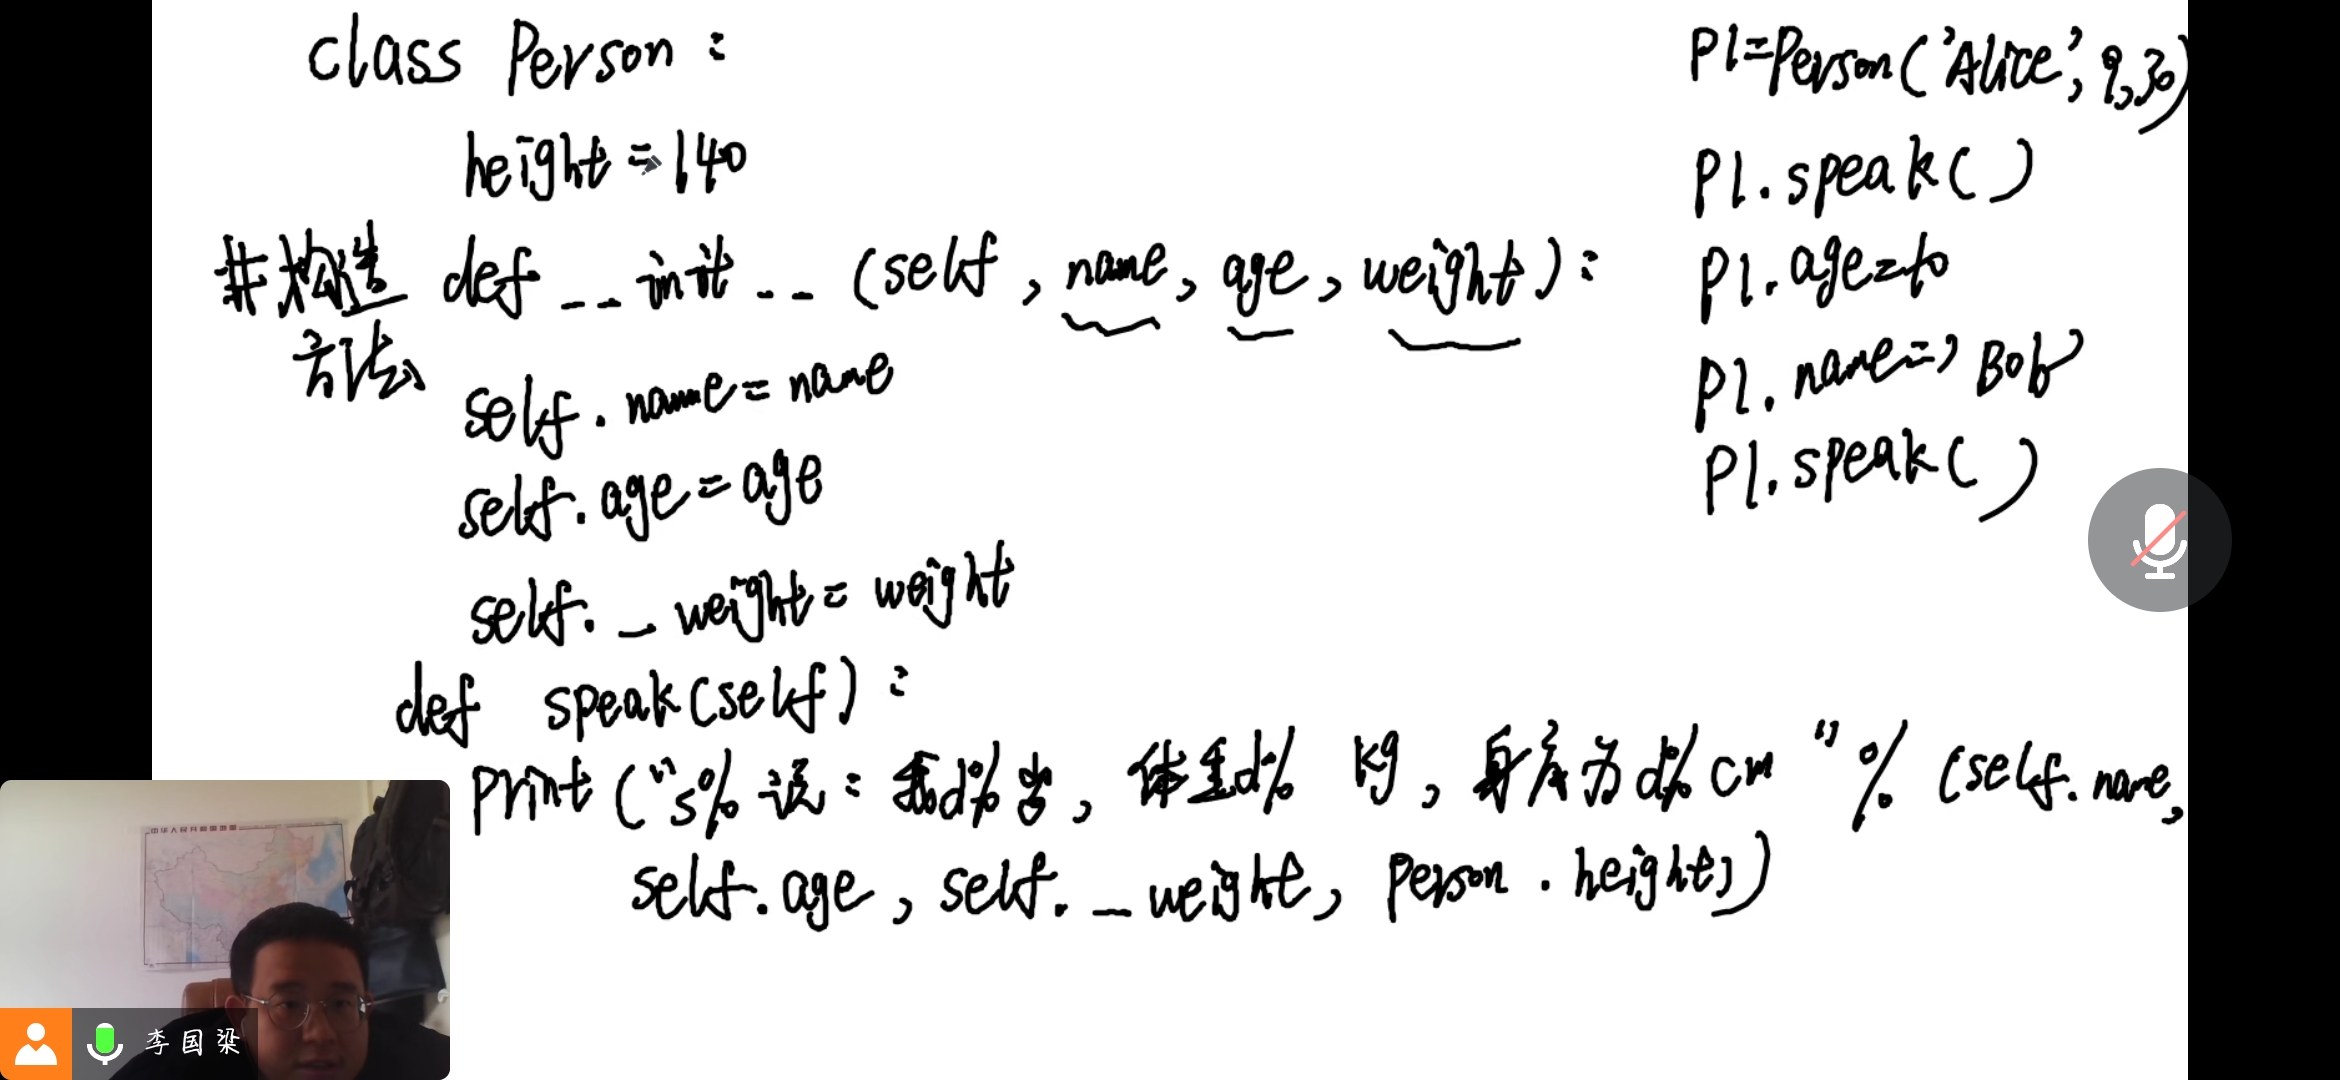 class Person:
height=140
#构造
方法
def __init__(self, name, age, weight):
self.name=name
self.age=age
self._weight=weight
def speak(self):
print("s%说:我d%岁,体重d% kg,身高为d%cm"%(self.name,
self.age, self._weight, Person.height))
P1=Person('Alice',9,30)
P1.speak()
P1.age=10
P1.name='Bob'
P1.speak()
中华人民共和国地图
李国梁